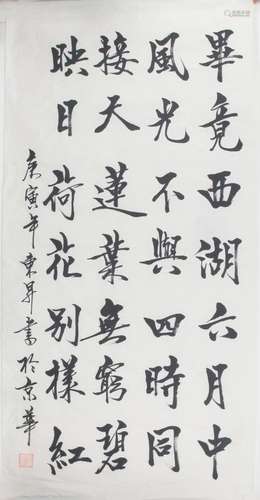 畢竟西湖六月中
風光不與四時同
接天蓮葉無窮碧
映日荷花別樣紅
庚寅年東昇書於京華